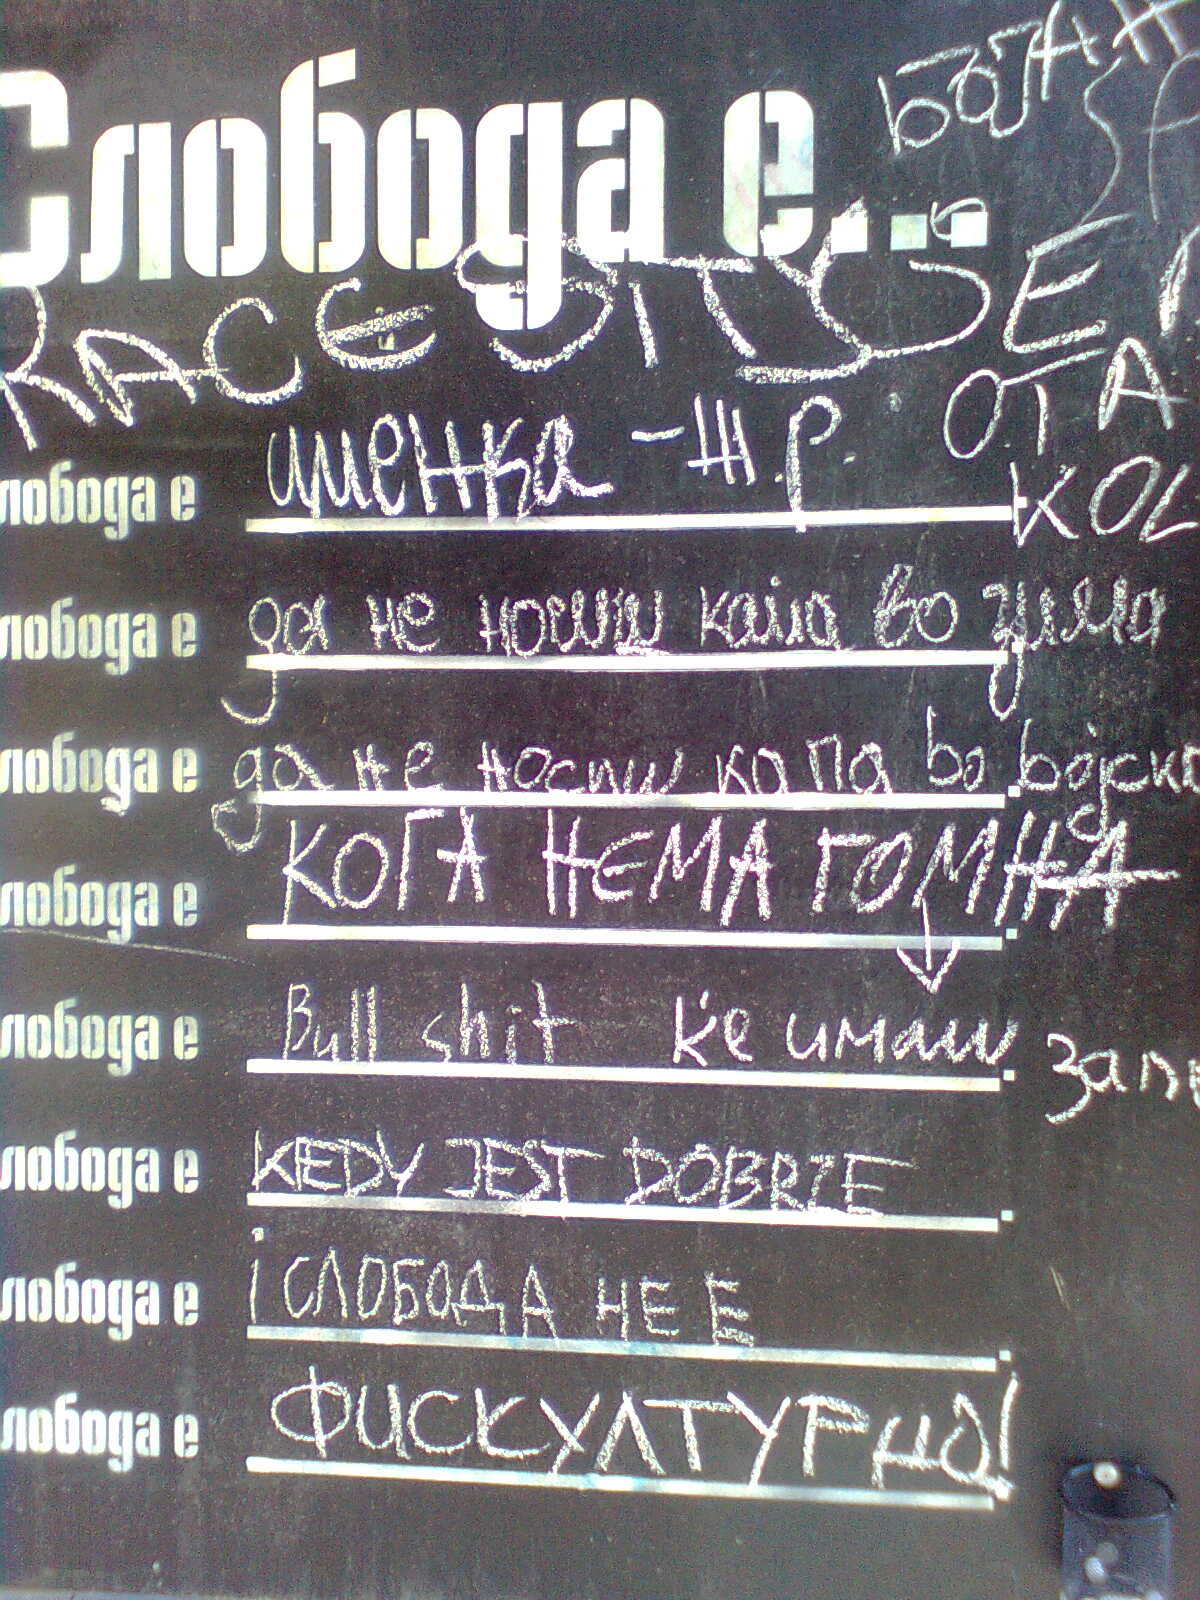 Слобода е...
слобода е именка - Ж.Р.
слобода е да не носиш капа во зима
слобода е да не носиш капа во војска
слобода е КОГА НЕМА ГОМНА
слобода е Bull shit ќе имаш
слобода е KIEDY JEST DOBRZE
слобода е i СЛОБОДА НЕ Е
слобода е ФИСКУЛТУРНО!